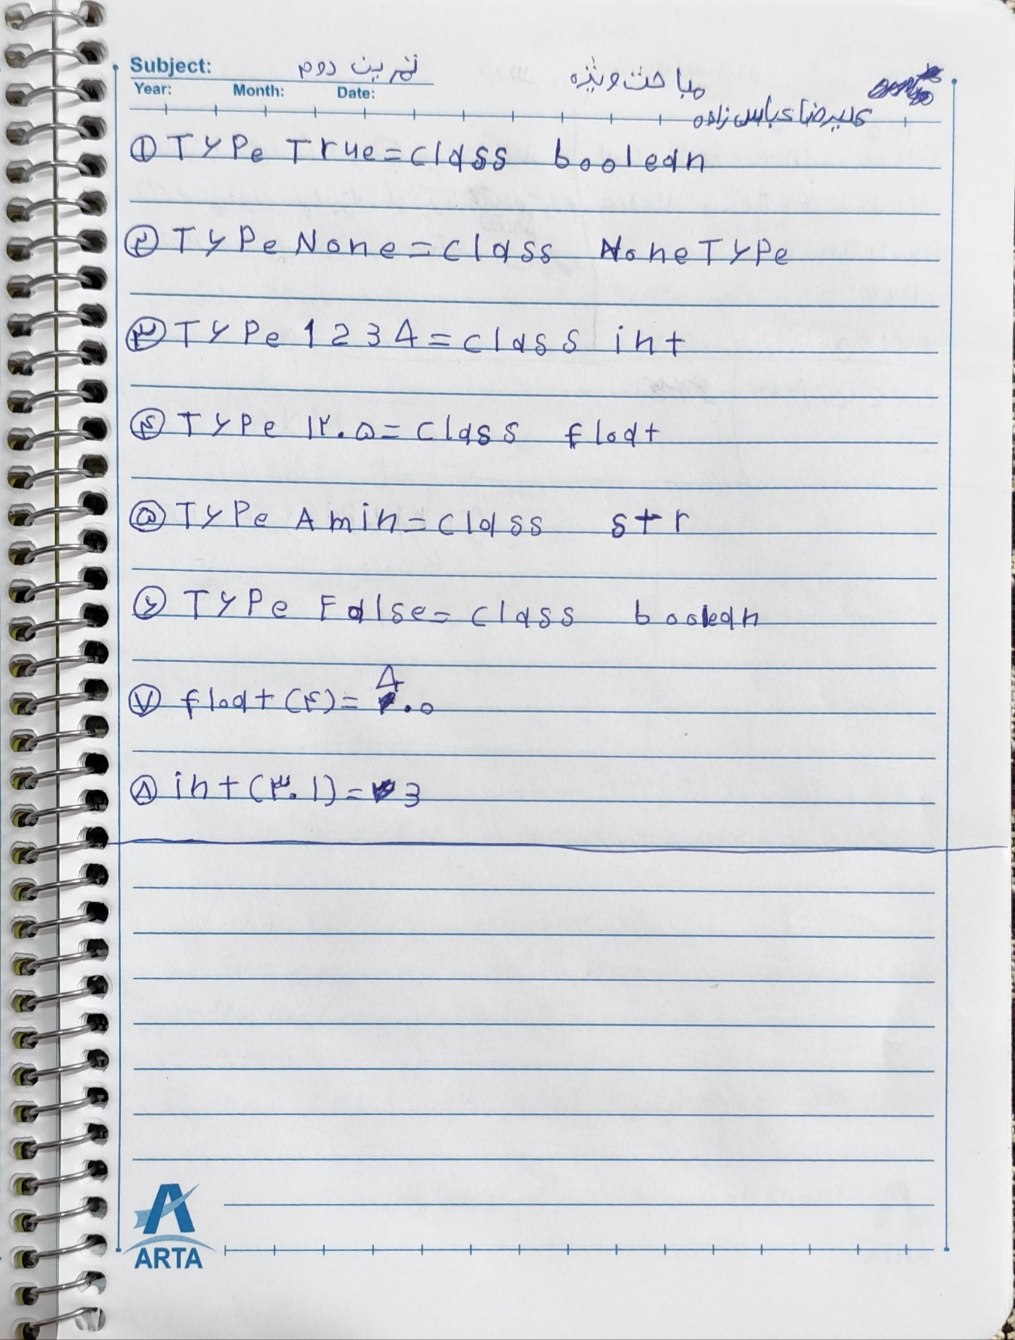 Subject: تمرین دوم مباحث ویژه
Year: Month: Date: علیرضا عباس زاده
① TYPe True=class boolean
② TYPe None=class NoneTYPe
③ TYPe 1234=class int
④ TYPe ۱۲.۵=class float
⑤ TYPe Amin=class str
⑥ TYPe False=class boolean
⑦ float(۴)=4.0
⑧ int(۳.۱)=3
ARTA